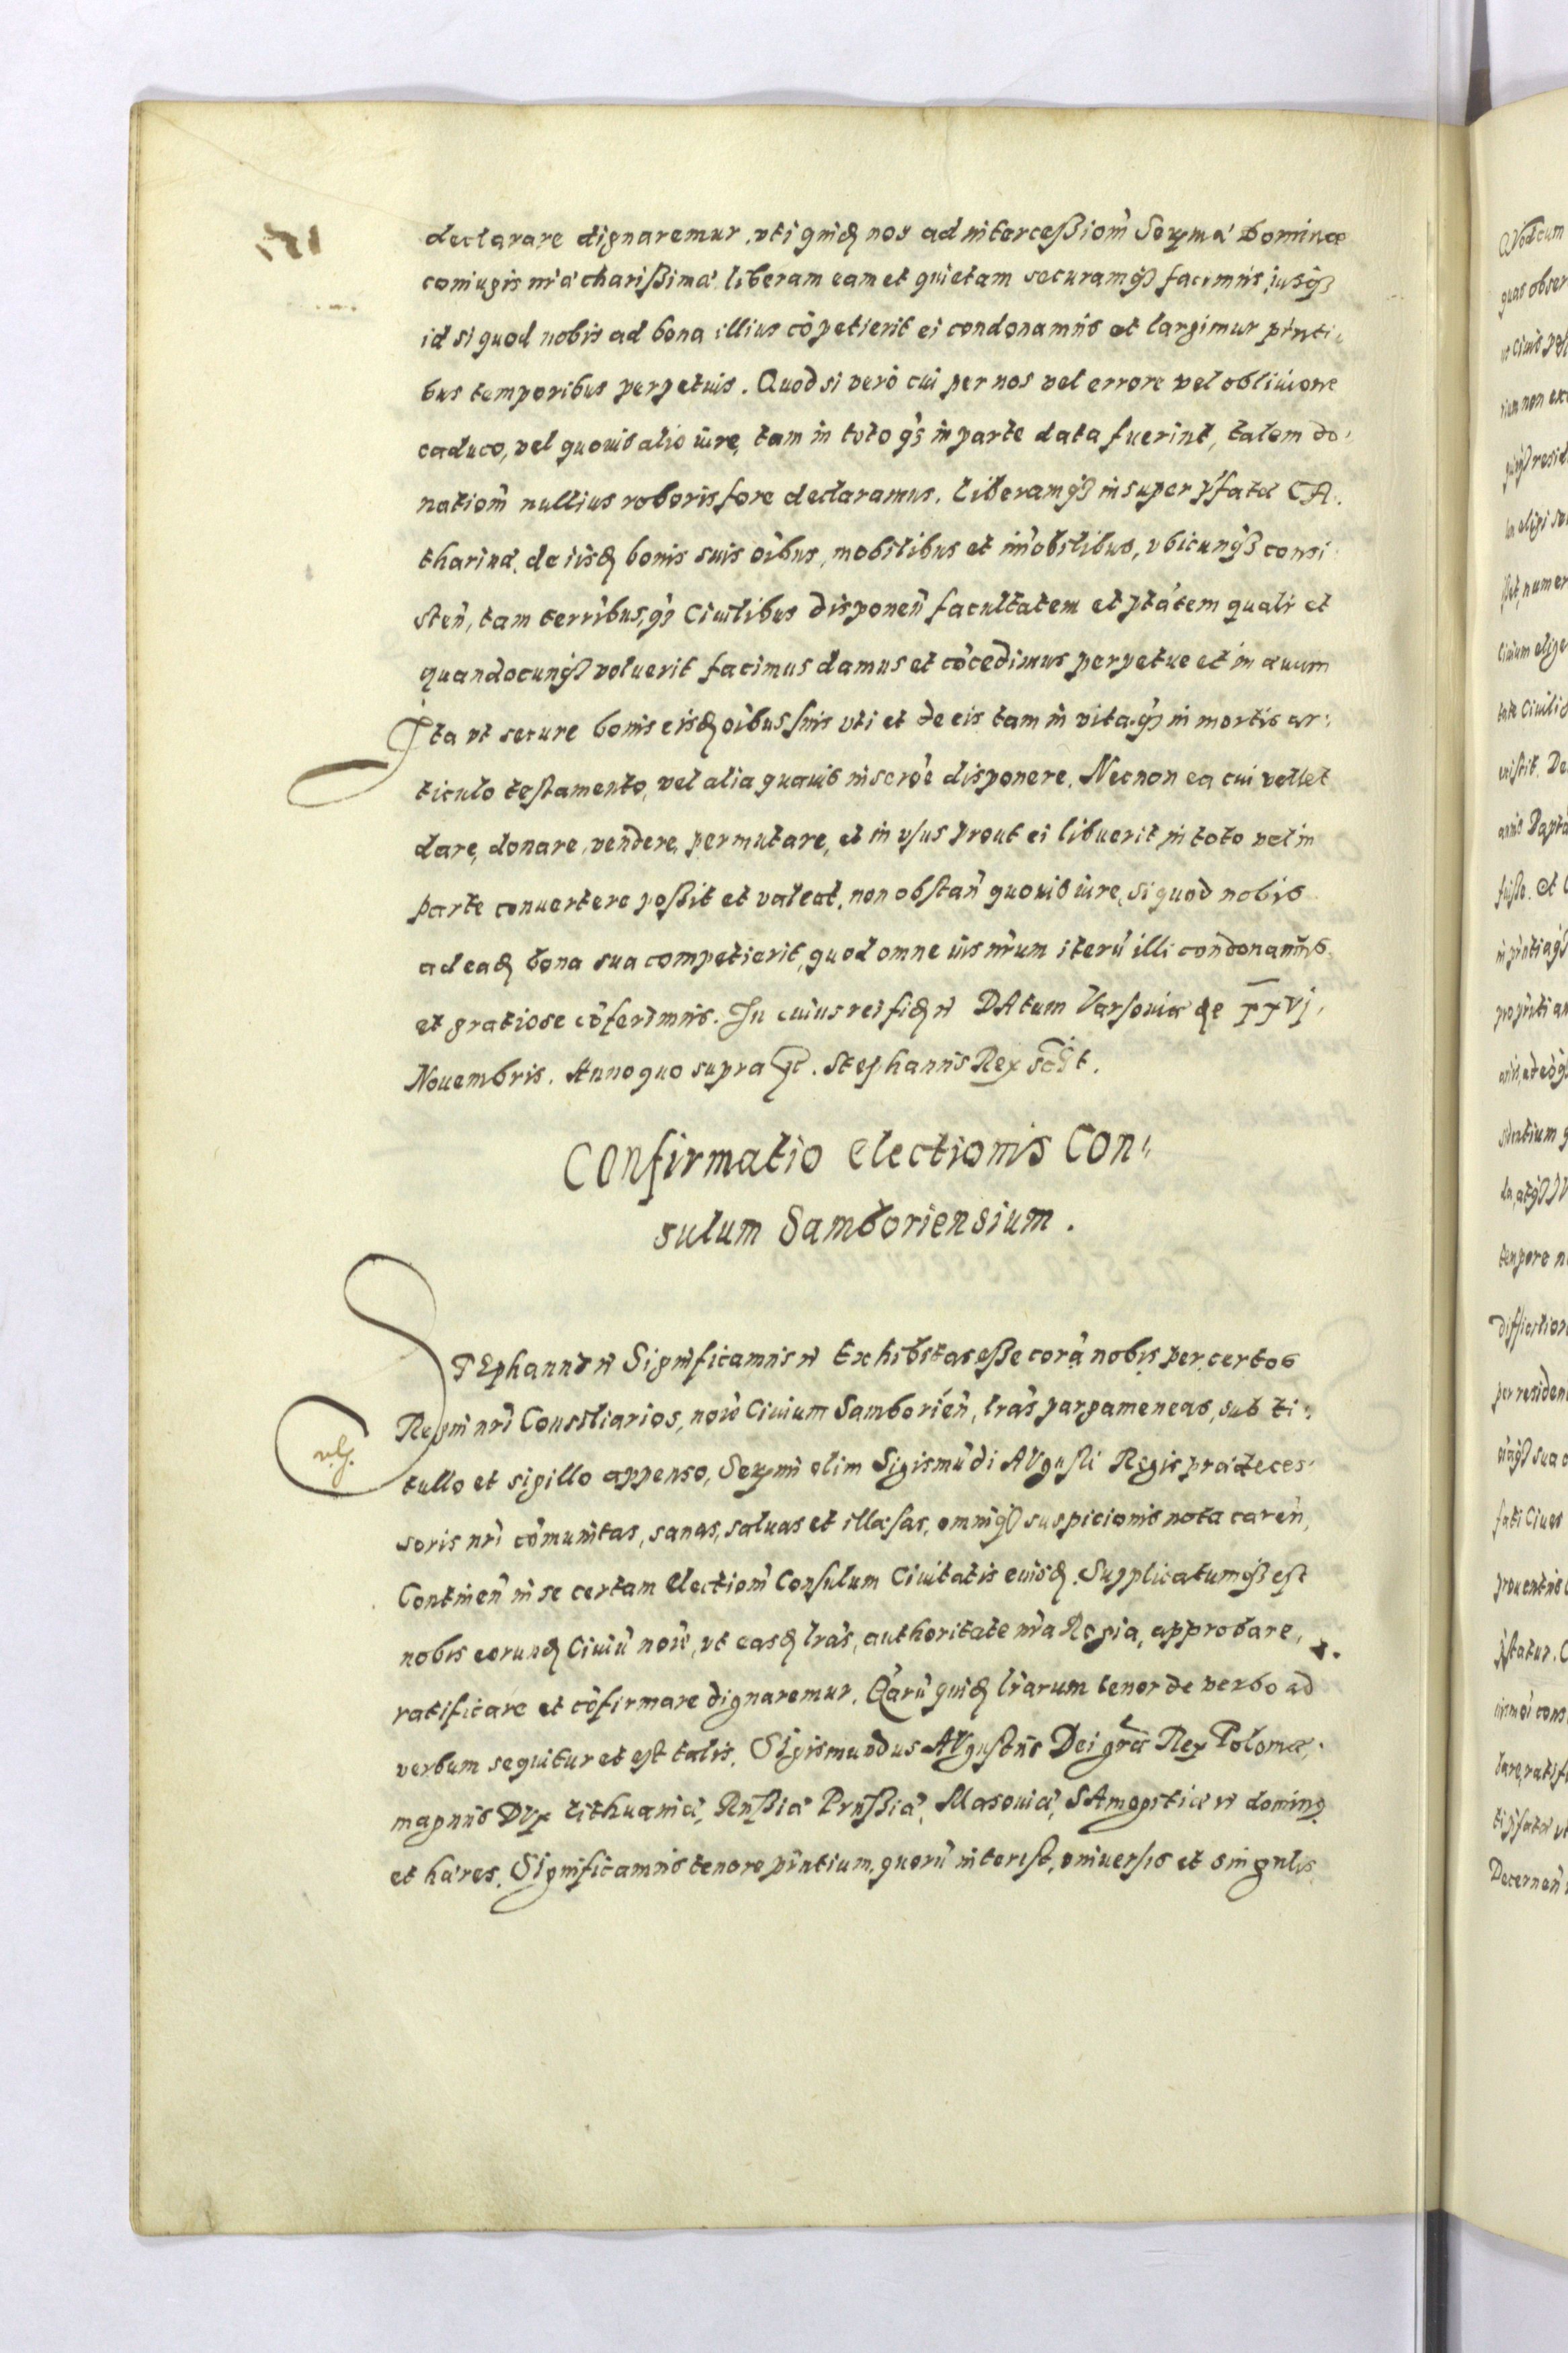 declarare dignaremur, vti quidꝫ nos ad intercessiom̃ Serẽmæ Dominæ
coniugis nr̃æ charissimæ liberam eam et quietam securamqꝫ facimus, iusqꝫ
id si quod nobis ad bona illius cõpetierit ei condonamus et largimur pñti-
bus temporibus perpetuis. Quod si verò cui per nos vel errore vel obliuione
caduco, vel quouis alio iure, tam in toto q̃ȝ in parte data fuerint, talem do-
natiom̃ nullius roboris fore declaramus. Liberamqꝫ insuper p̃fatæ CA-
tharinæ, de iisdꝫ bonis suis oĩbus, mobilibus et im̃obilibus, vbicunqꝫ consi-
steñ, tam terr̃ibus, q̃ȝ Ciuilibus disponeñ facultatem et ptãtem quali et
quandocunqꝫ voluerit facimus damus et cõcedimus perpetue et in æuum
Ita vt secure bonis eisdꝫ oĩbus suis vti et de eis tam in vita q̃ȝ in mortis ar-
ticulo testamento, vel alia quauis disponere. Necnon ea cui vellet
dare, donare, vendere, permutare, et in vsus prout ei libuerit in toto vel in
parte conuertere possit et valeat, non obstañ quouis iure, si quod nobis
ad eadꝫ bona sua competierit, quod omne ius nr̃um iterũ illi condonamus
et gratiose cõferimus. In cuius rei fidꝫ etc DAtum Varsouiæ die XXVI,
Nouembris. Anno quo supra etc. Stephanus Rex sc̃št.
Confirmatio electionis Con-
sulum Samboriensium.
STEphannus etc Significamus etc Exhibitas esse corã nobis per certos
Regni nr̃i Consiliarios, noĩe Ciuium Samborień, lr̃as pargameneas, sub ti-
v.G.
tullo et sigillo appenso, Serẽmi olim Sigismũdi AVgusti Regis prædeces-
soris nr̃i cõmunitas, sanas, saluas et illæsas, omniqꝫ suspicionis nota careñ,
Continẽn in se certam Electiom̃ Consulum Ciuitatis eiusdꝫ. Supplicatumqꝫ est
nobis eorundꝫ Ciuiũ noĩe, vt easdꝫ lr̃as, authoritate nr̃a Regia, approbare,
ratificare et cõfirmare dignaremur. Q̃arũ quidꝫ lr̃arum tenor de verbo ad
verbum sequitur et est talis. SIgismundus AVgustus Dei gr̃a Rex Poloniæ,
magnus DVx Lithuaniæ, Russiæ Prussiæ, Masouiæ, SAmogitiæ etc dominꝯ
et hæres. SIgnificamus tenore pñtium, quorũ interest, vniuersis et singulis